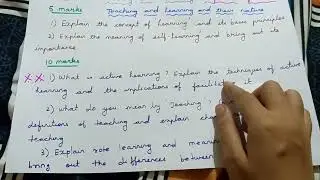 5 marks Teaching and Learning and their nature
1) Explain the concept of learning and its basic principles
2) Explain the meaning of self-learning and bring out its
importance
10 marks
x x 1) What is active learning? Explain the techniques of active
learning and the implications of facilitating it.
2) What do you mean by Teaching?
definitions of teaching and explain
teaching
3) Explain rote learning and
bring out the differences between